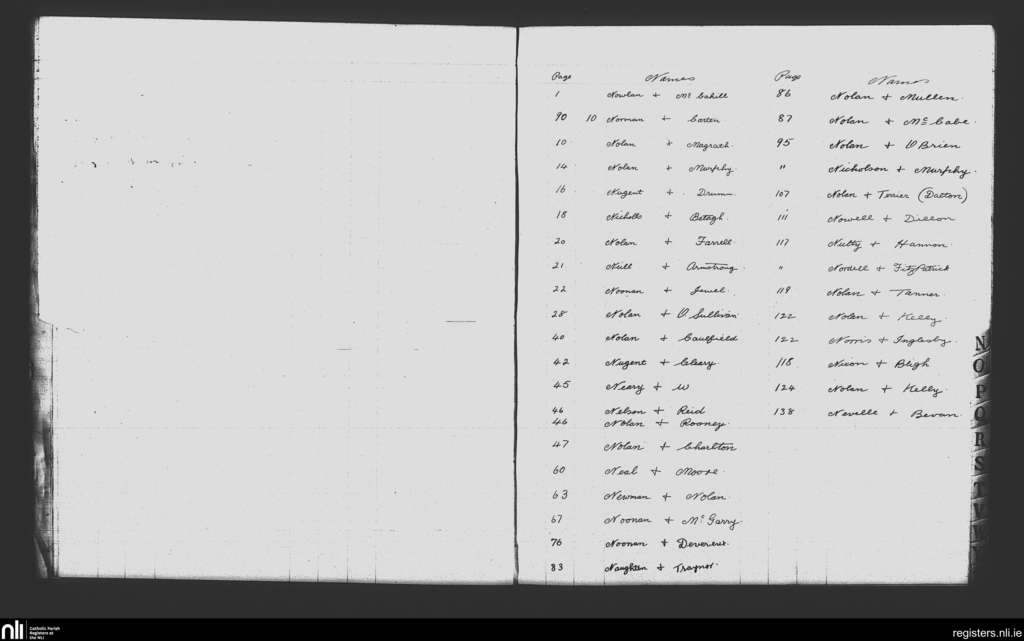 Page Names
1 Nowlan + McCahill
90 10 Norman + Carten
10 Nolan + Magrath
14 Nolan + Murphy
16 Nugent + Drumm
18 Nicholls + Betagh
20 Nolan + Farrell
21 Null + Armstrong
22 Noonan + Jewel
28 Nolan + O'Sullivan
40 Nolan + Caulfield
42 Nugent + Cleary
45 Neary + W
46 Nelson + Reid
46 Nolan + Rooney
47 Nolan + Charlton
60 Neal + Moore
63 Newman + Nolan
67 Noonan + McGarry
76 Noonan + Devereux
83 Naughten + Traynor
Page Names
86 Nolan + Mullen
87 Nolan + McCabe
95 Nolan + O'Brien
" Nicholson + Murphy
107 Nolan + Terier (Dalton)
111 Nowell + Dillon
117 Nutty + Hannon
" Nordell + FitzPatrick
119 Nolan + Tanner
122 Nolan + Kelly
122 Norris + Inglesby
118 Nixon + Bligh
124 Nolan + Kelly
138 Neville + Bevan
N
O
P
Q
R
S
T
V
nli Catholic Parish
Registers at
the NLI
registers.nli.ie